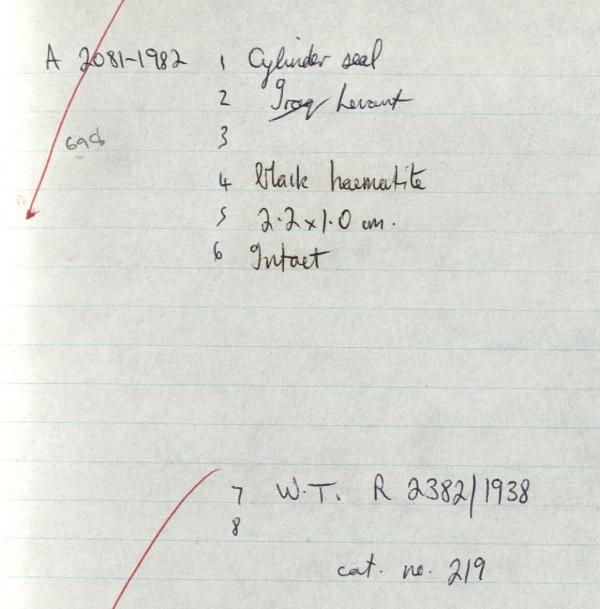 A 2081-1982 1 Cylinder seal
2 Iraq Levant
69d
3
4 black haematite
5 2.2 x 1.0 cm.
6 Intact
7 W.T. R 2382/1938
8
cat. no. 219